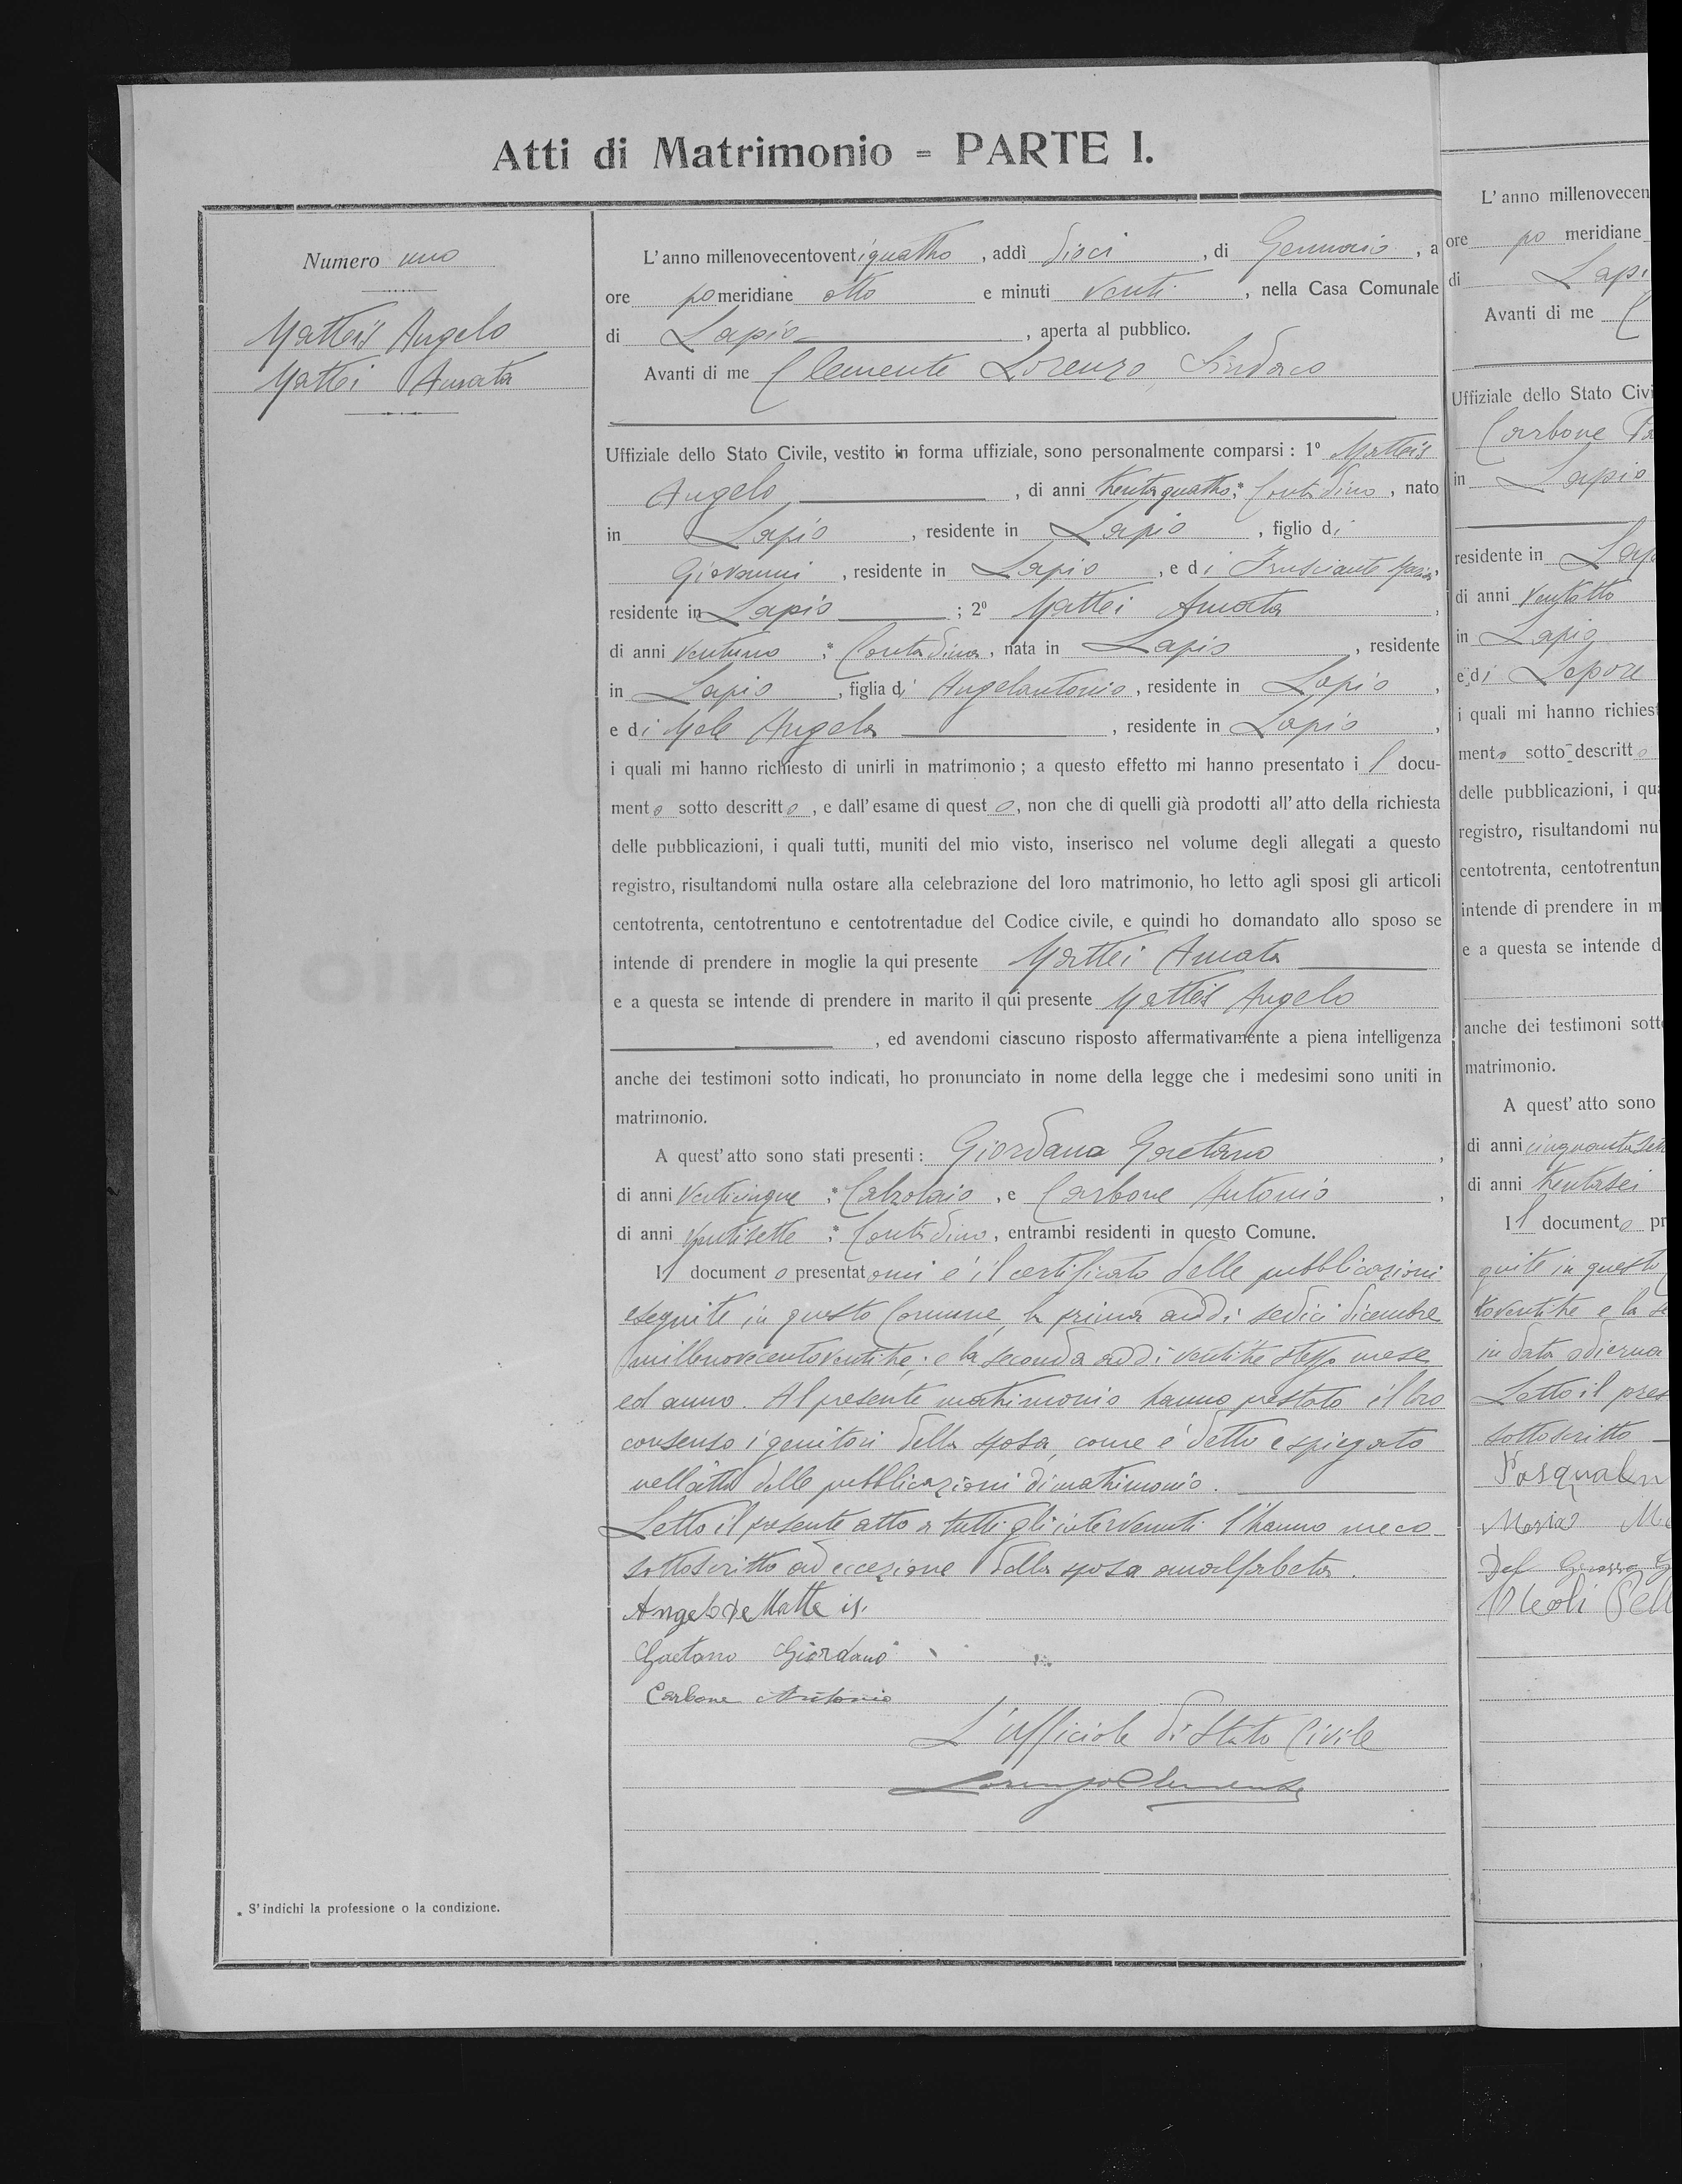 Atti di Matrimonio = PARTE I.
Numero uno
Matteis Angelo
Mattei Amata
L'anno millenovecentoventiquattro, addì dieci, di Gennaio, a
ore pomeridiane otto e minuti venti, nella Casa Comunale
di Lapio, aperta al pubblico.
Avanti di me Clemente Lorenzo, Sindaco
Uffiziale dello Stato Civile, vestito in forma uffiziale, sono personalmente comparsi : 1º Matteis
Angelo, di anni trentaquattro * Contadino, nato
in Lapio, residente in Lapio, figlio di
Giovanni, residente in Lapio, e di Frusciante Maria
residente in Lapio ; 2º Mattei Amata,
di anni ventuno * Contadina, nata in Lapio, residente
in Lapio, figlia di Angelantonio, residente in Lapio,
e di Mele Angela, residente in Lapio,
i quali mi hanno richiesto di unirli in matrimonio ; a questo effetto mi hanno presentato il docu-
mento sotto descritto, e dall'esame di questo, non che di quelli già prodotti all'atto della richiesta
delle pubblicazioni, i quali tutti, muniti del mio visto, inserisco nel volume degli allegati a questo
registro, risultandomi nulla ostare alla celebrazione del loro matrimonio, ho letto agli sposi gli articoli
centotrenta, centotrentuno e centotrentadue del Codice civile, e quindi ho domandato allo sposo se
intende di prendere in moglie la qui presente Mattei Amata
e a questa se intende di prendere in marito il qui presente Matteis Angelo
, ed avendomi ciascuno risposto affermativamente a piena intelligenza
anche dei testimoni sotto indicati, ho pronunciato in nome della legge che i medesimi sono uniti in
matrimonio.
A quest'atto sono stati presenti : Giordano Gaetano,
di anni venticinque * Calzolaio, e Carbone Antonio,
di anni ventisette * Contadino, entrambi residenti in questo Comune.
Il documento presentatomi è il certificato delle pubblicazioni
eseguite in questo Comune, la prima addì sedici dicembre
millenovecentoventitre; e la seconda addì ventitre stesso mese
ed anno. Al presente matrimonio hanno prestato il loro
consenso i genitori della sposa, come è detto e spiegato
nell'atto delle pubblicazioni di matrimonio.
Letto il presente atto a tutti gli intervenuti l'hanno meco
sottoscritto ad eccezione della sposa analfabeta.
Angelo de Matte is.
Gaetano Giordano
Carbone Antonio
L'ufficiale di Stato Civile
Lorenzo Clemente
* S'indichi la professione o la condizione.
L'anno millenovecen
ore po meridiane
di Lapi
Avanti di me C
Uffiziale dello Stato Civi
Carbone Pa
in Lapio
residente in Lap
di anni ventotto
in Lapio
e di Lepore
i quali mi hanno richiest
mento sotto descritto
delle pubblicazioni, i qua
registro, risultandomi nu
centotrenta, centotrentun
intende di prendere in m
e a questa se intende d
anche dei testimoni sott
matrimonio.
A quest'atto sono
di anni cinquantasett
di anni trentasei
Il documento pr
guite in questo
toventitre e la se
in data odierna
Letto il pres
sottoscritto
Pasqualin
Maria M